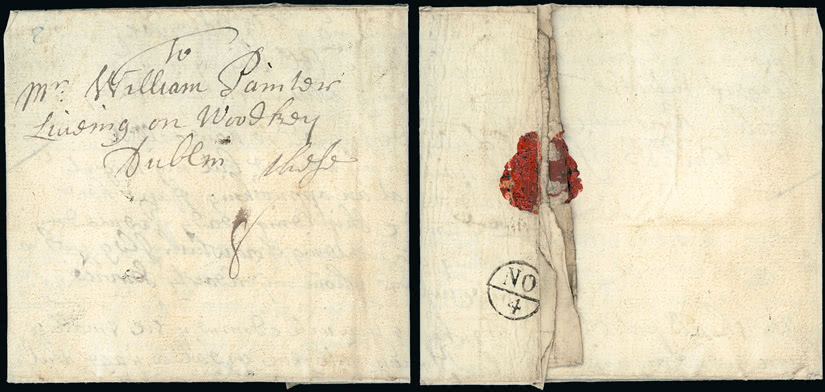 To
Mr. William Painter
Liveing on Woodkey
Dublin these
8
NO
4